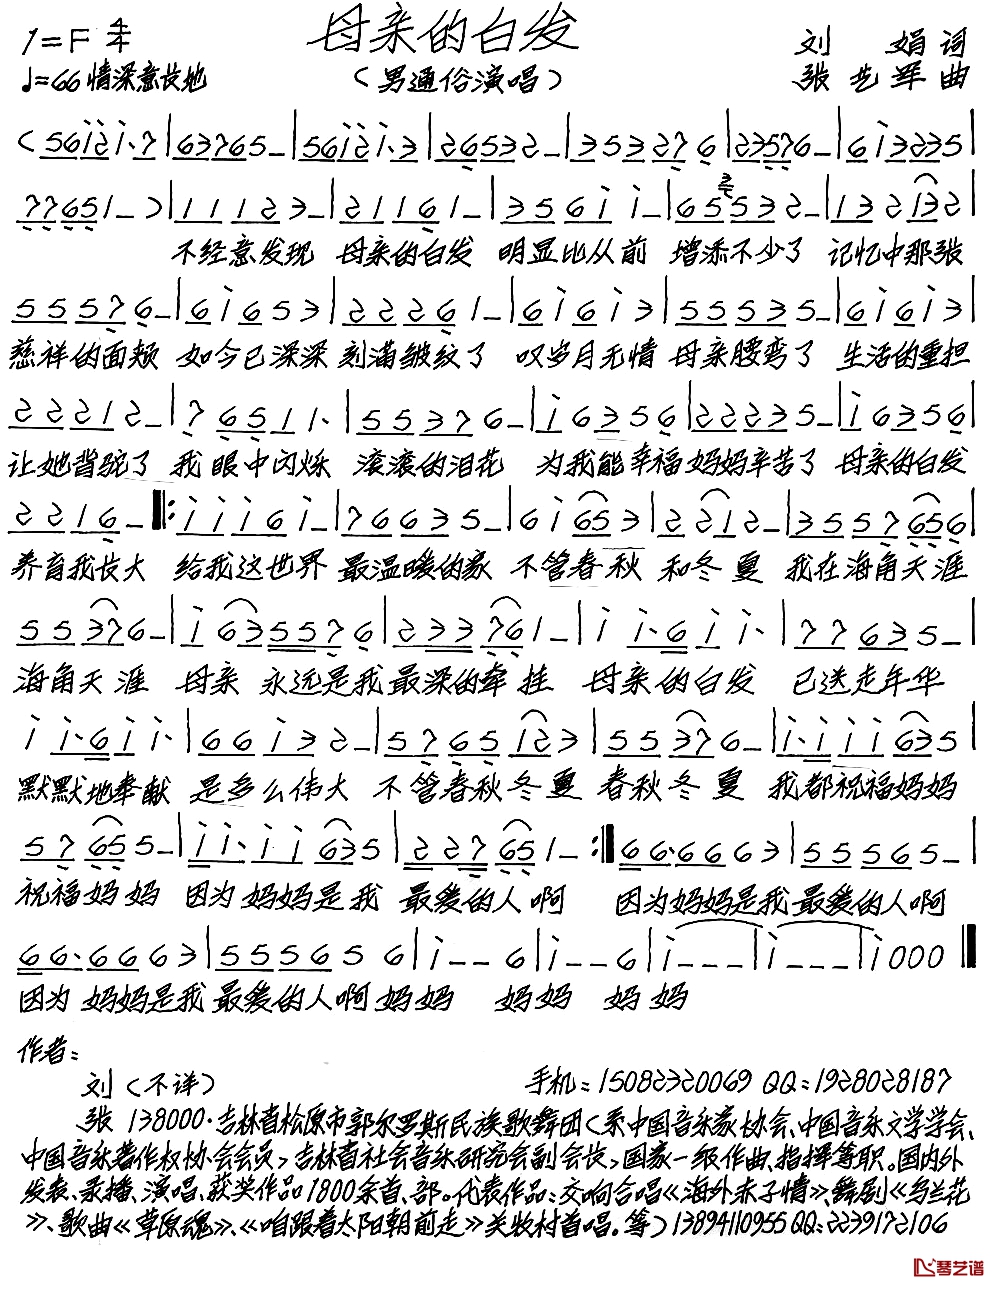 母亲的白发
1=F 4/4
刘 娟 词
♩=66 情深意长地
(男通俗演唱)
张艺军 曲
(56i2i·7|63765_|56i2i·3|26532_|353276|23576_|6i32235|
77651_)|11123_|21161_|356ii_|655332_|132i32|
不经意发现 母亲的白发 明显比从前 增添不少了 记忆中那张
55576_|6i653|22261_|6i6i3|55535_|6i6i3|
慈祥的面颊 如今已深深 刻满皱纹了 叹岁月无情 母亲腰弯了 生活的重担
22212_|76511·|55376_|i6356|22235_|i6356|
让她背驼了 我眼中闪烁 滚滚的泪花 为我能幸福 妈妈辛苦了 母亲的白发
2216_‖:iii6i_|76635_|6i653|2212_|3557656|
养育我长大 给我这世界 最温暖的家 不管春秋 和冬夏 我在海角天涯
55376_|i635576|233761_|ii·6ii·|77635_|
海角天涯 母亲 永远是我最深的牵挂 母亲的白发 已送走年华
ii·6ii·|66i32_|5765i23|55376_|i·iii635|
默默地奉献 是多么伟大 不管春秋冬夏 春秋冬夏 我都祝福妈妈
57655_|ii·ii635|227651_:‖66·6663|55565_|
祝福妈妈 因为妈妈是我 最爱的人啊 因为妈妈是我最爱的人啊
66·6663|555656|i__6|i__6|i___|i___|i000‖
因为妈妈是我最爱的人啊妈妈 妈妈 妈妈
作者:
刘(不详) 手机:15082320069 QQ:1928028187
张 138000·吉林省松原市郭尔罗斯民族歌舞团(系中国音乐家协会、中国音乐文学学会、
中国音乐著作权协会会员,吉林省社会音乐研究会副会长,国家一级作曲、指挥等职。国内外
发表、录播、演唱、获奖作品1800余首、部。代表作品:交响合唱《海外赤子情》、舞剧《乌兰花
》、歌曲《草原魂》、《咱跟着太阳朝前走》关牧村首唱。等)13894110955 QQ:2239172106
琴艺谱